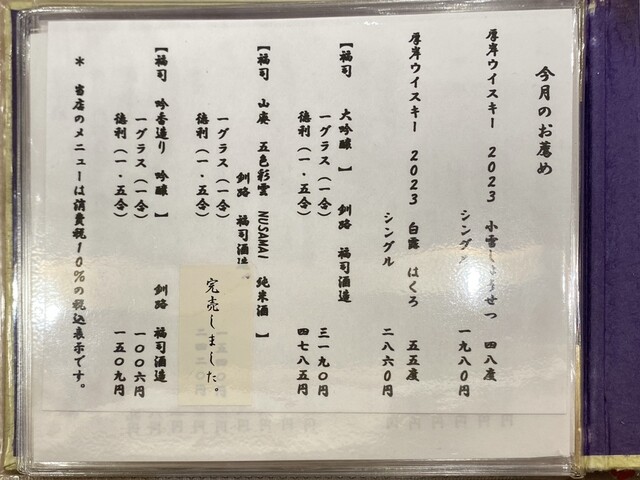 今月のお薦め
厚岸ウイスキー 2023 小雪しょうせつ 四八度
シングル 一九八〇円
厚岸ウイスキー 2023 白露 はくろ 五五度
シングル 二八六〇円
【福司 大吟醸 】 釧路 福司酒造
一グラス(一合) 三一九〇円
徳利(一・五合) 四七八五円
【福司 山廃 五色彩雲 NUSAMAI 純米酒 】
釧路 福司酒造
一グラス(一合)
徳利(一・五合)
完売しました。
【福司 吟香造り 吟醸 】 釧路 福司酒造
一グラス(一合) 一〇〇六円
徳利(一・五合) 一五〇九円
* 当店のメニューは消費税10%の税込表示です。